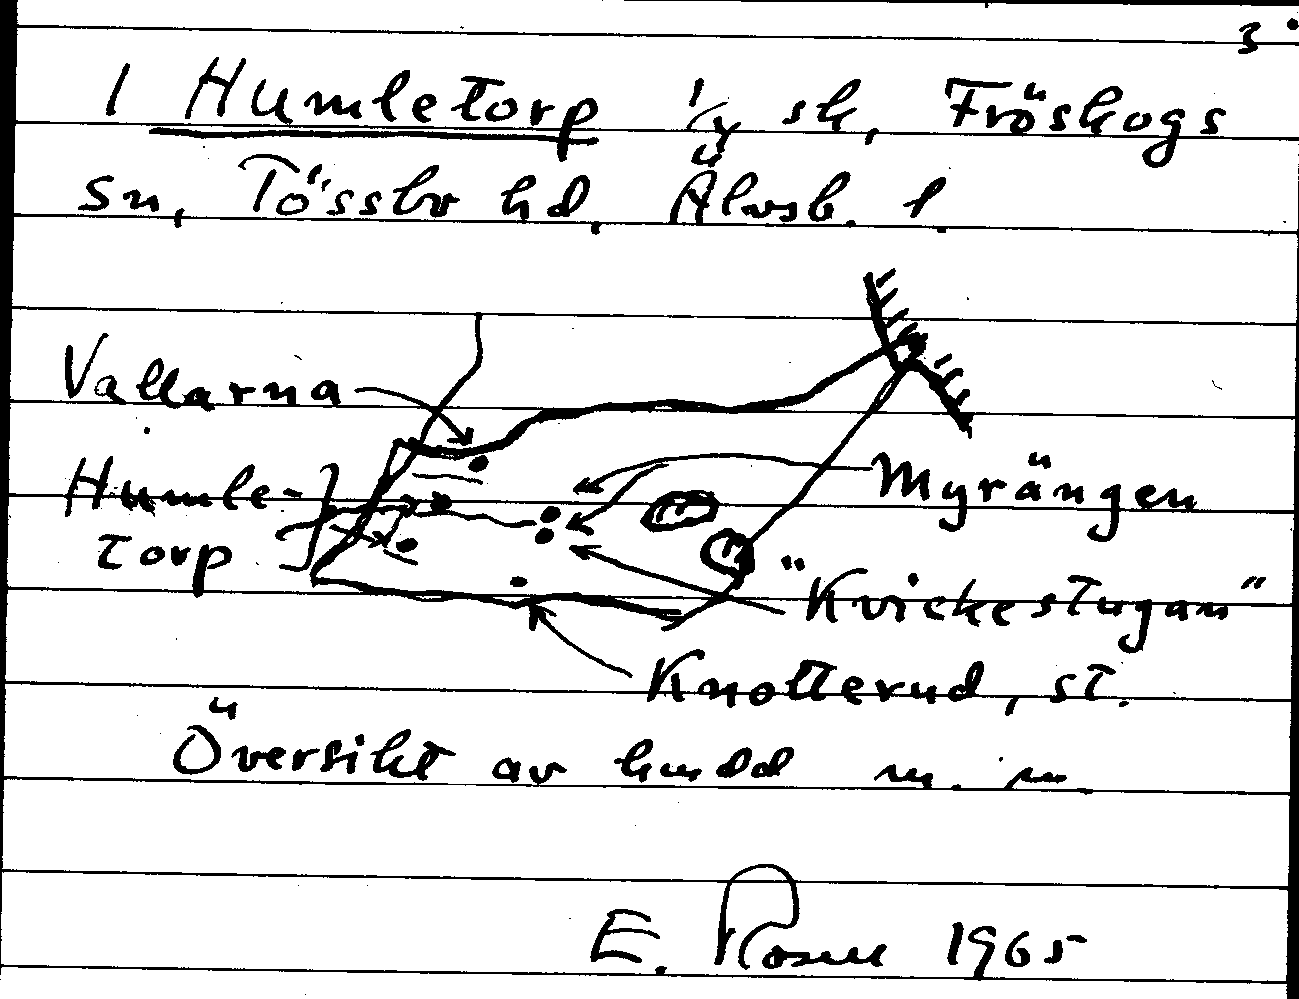 3
1 Humletorp 1/4 sk, Fröskogs
sn, Tössbo hd, Älvsb. l.
Vallarna
Humle-
torp
Myrängen
"Kvickestugan"
Knotterud, st.
Översikt av hmdd m. m
E. Rosell 1965